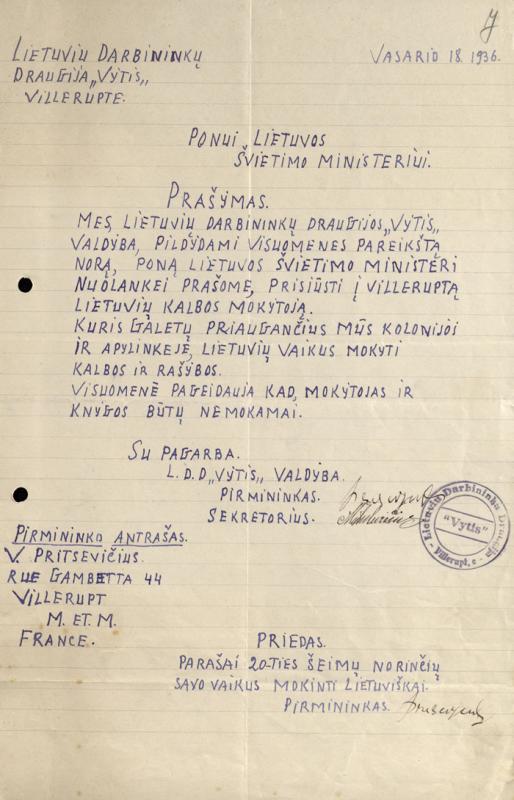 7
LIETUVIŲ DARBININKŲ
DRAUGIJA „VYTIS„
VILLERUPTE.
VASARIO 18. 1936.
PONUI LIETUVOS
ŠVIETIMO MINISTERIUI.
PRAŠYMAS.
MES, LIETUVIŲ DARBININKŲ DRAUGIJOS „VYTIS„
VALDYBA, PILDYDAMI VISUOMENES PAREIKŠTĄ
NORĄ, PONĄ LIETUVOS ŠVIETIMO MINISTERI
NUOLANKEI PRAŠOME, PRISIŲSTI Į VILLERUPTĄ
LIETUVIŲ KALBOS MOKYTOJĄ.
KURIS GALETŲ PRIAUGANČIUS MŪS KOLONIJOI
IR APYLINKEJE, LIETUVIŲ VAIKUS MOKYTI
KALBOS IR RAŠYBOS.
VISUOMENĖ PAGEIDAUJA KAD, MOKYTOJAS IR
KNYGOS BŪTŲ NEMOKAMAI.
SU PAGARBA.
L.D.D „VYTIS„ VALDYBA.
PIRMININKAS.
SEKRETORIUS.
Lietuvių Darbininkų Draugija
"Vytis"
Villerupt, e
PIRMININKO ANTRAŠAS.
V. PRITSEVIČIUS.
RUE GAMBETTA 44
VILLERUPT
M. ET. M.
FRANCE.
PRIEDAS.
PARAŠAI 20-TIES ŠEIMŲ NORINČIŲ
SAVO VAIKUS MOKINTI LIETUVIŠKAI.
PIRMININKAS.